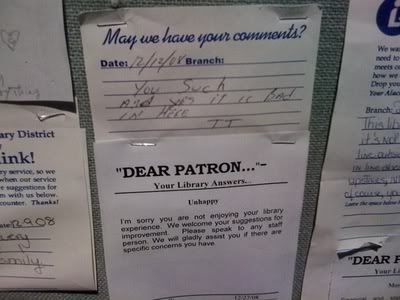 May we have your comments?
Date: 12/12/08 Branch:
You Suck
And yes it is Bad
in Here
"DEAR PATRON..."-
Your Library Answers..
Unhappy
I'm sorry you are not enjoying your library
experience. We welcome your suggestions for
improvement. Please speak to any staff
person. We will gladly assist you if there are
specific concerns you have.
12/27/08
ary District
ink!
ry service, so we
when our service
e suggestions for
m with us below.
counter. Thanks!
We wa
need to
meets o
how we
Drop you
Your Alan
Branch:
This lib
it's NO
"DEAR P